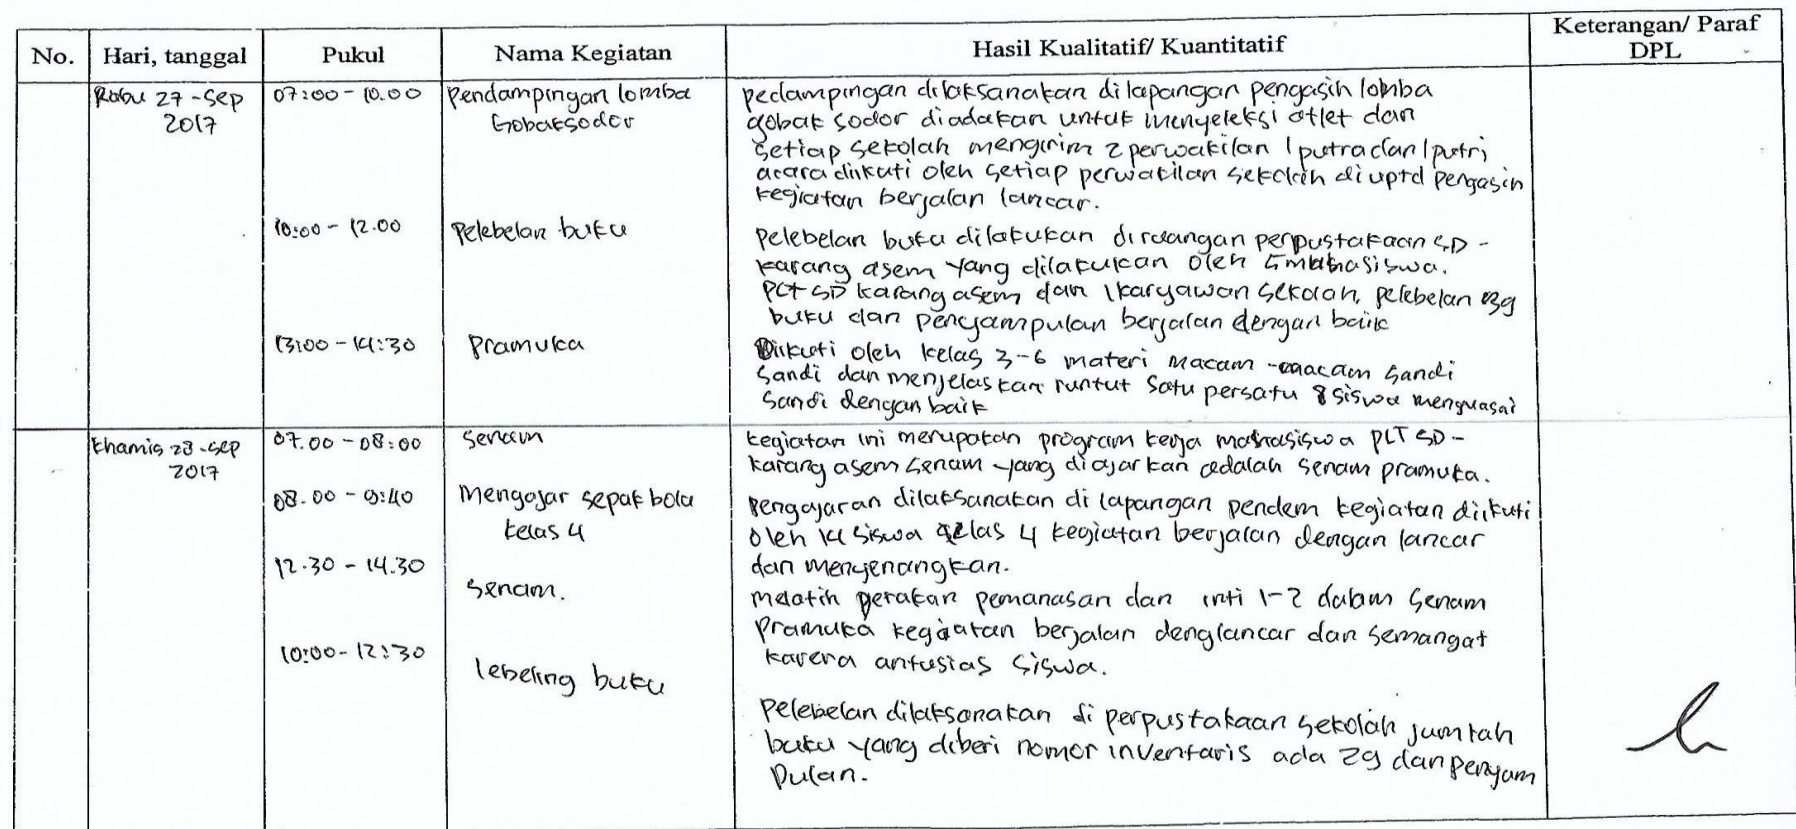 No. Hari, tanggal Pukul Nama Kegiatan Hasil Kualitatif/ Kuantitatif Keterangan/ Paraf DPL
Rabu 27-Sep 2017
07:00 - 10.00
Pendampingan lomba
Gobaksodor
pedampingan dilaksanakan di lapangan pengasih lomba
gobak sodor diadakan untuk menyeleksi atlet dan
setiap sekolah mengirim 2 perwakilan 1 putra dan 1 putri
acara diikuti oleh setiap perwakilan sekolah di uptd pengasih
kegiatan berjalan lancar.
10:00 - 12.00
Pelebelan buku
Pelebelan buku dilakukan diruangan perpustakaan SD -
karang asem yang dilakukan oleh 5 mahasiswa.
PLT SD karang asem dan 1 karyawan sekolah, pelebelan 39
buku dan penyampulan berjalan dengan baik
13:00 - 14:30
Pramuka
Diikuti oleh kelas 3-6 materi macam-macam sandi
Sandi dan menjelaskan runtut satu persatu 8 siswa menguasai
Sandi dengan baik
Khamis 28-Sep
2017
07.00 - 08:00
Senam
kegiatan ini merupakan program kerja mahasiswa PLT SD -
karang asem senam yang diajarkan adalah senam pramuka.
08.00 - 9:40
Mengajar sepak bola
kelas 4
pengajaran dilaksanakan di lapangan pendem kegiatan diikuti
oleh 14 siswa kelas 4 kegiatan berjalan dengan lancar
dan menyenangkan.
12.30 - 14.30
Senam.
melatih gerakan pemanasan dan inti 1-2 dalam senam
pramuka kegiatan berjalan denglancar dan semangat
karena antusias siswa.
10:00 - 12:30
lebeling buku
Pelebelan dilaksanakan di perpustakaan sekolah jumlah
buku yang diberi nomor inventaris ada 29 dan penyam
pulan.